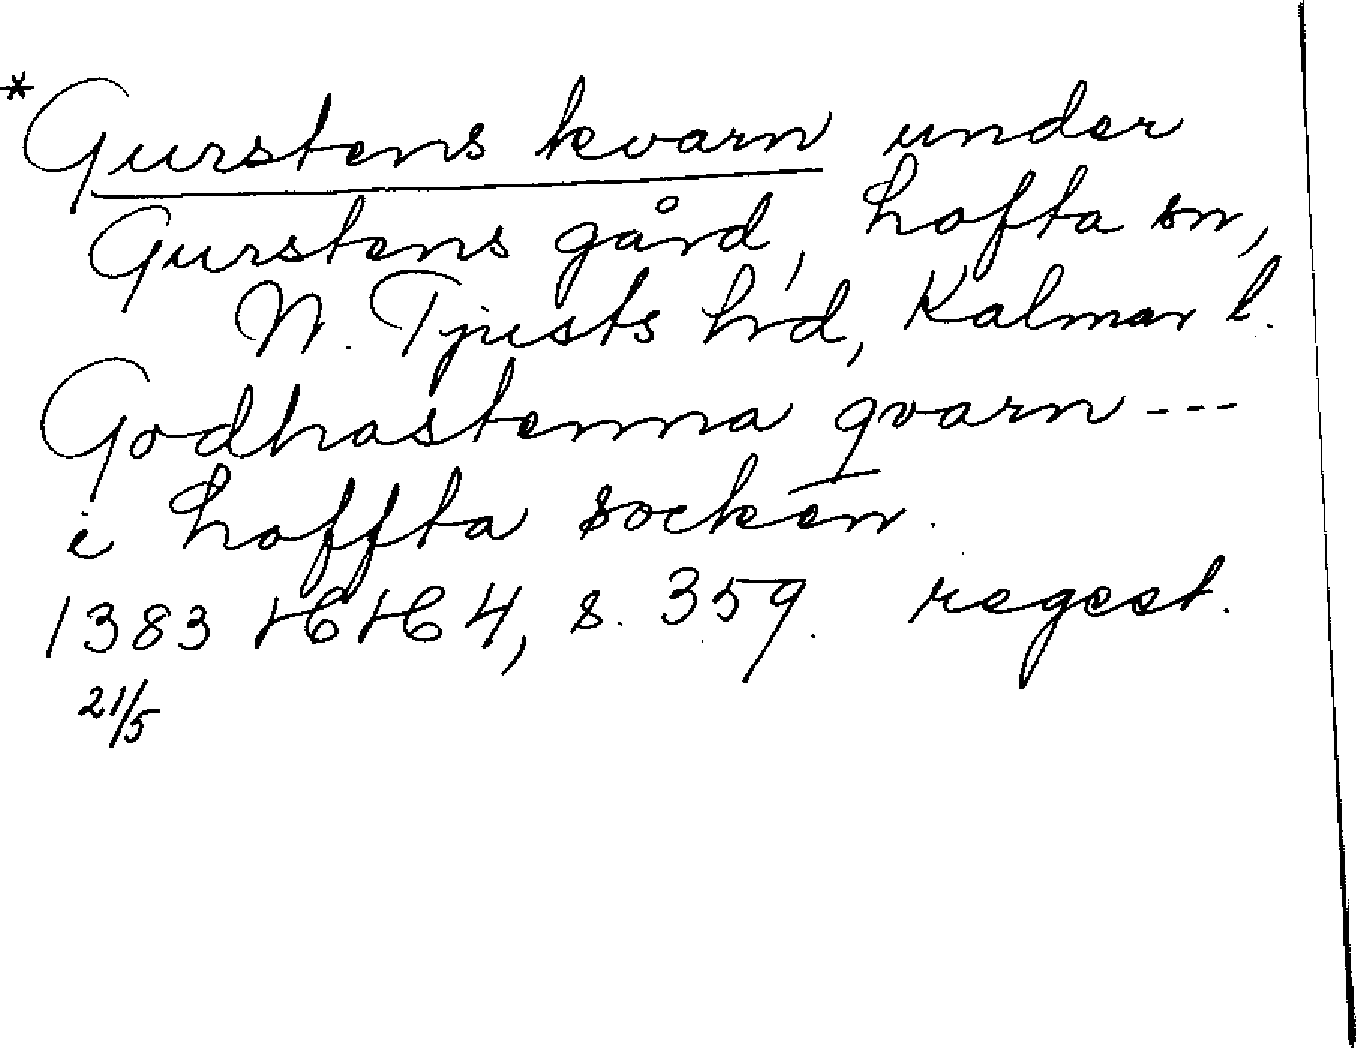 *Gurstens kvarn under
Gurstens gård, Lofta sn,
N. Tjusts hrd, Kalmar l.
Godhastenna qvarn ---
i Loffta socken.
1383 HH 4, s. 359. regest.
21/5